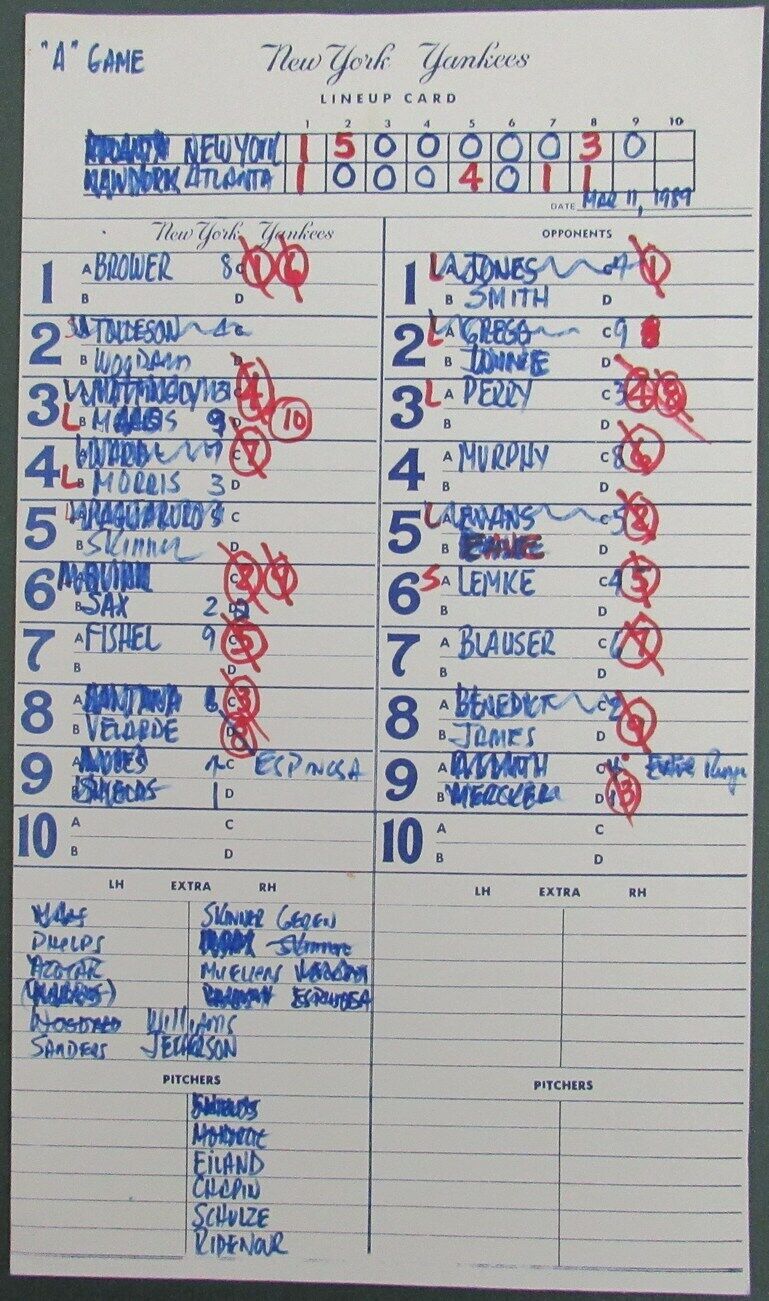 "A" GAME
New York Yankees
LINEUP CARD
1 2 3 4 5 6 7 8 9 10
NEW YORK 1 5 0 0 0 0 0 3 0
NEW YORK ATLANTA 1 0 0 0 4 0 1 1
DATE MAR 11, 1989
New York Yankees
1 A BROWER 8 C 1 6
B D
2 S A TOLLESON 4 C
B WOODARD D
3 L A MATTINGLY 3 C 4
L B 9 D 10
4 A WARD 7 C 7
L B MORRIS 3 D
5 A PAGLIARULO 5 C
B SKINNER D
6 C 2 9
B SAX 2 D
7 A FISHEL 9 C 5
B D
8 A SANTANA 6 C 3
B VELARDE D 8
9 A C ESPINOSA
B SHIELDS 1 D
10 A C
B D
OPPONENTS
1 L A JONES C 7 1
B SMITH D
2 L A GREGG C 9
B D
3 L A PERRY C 3 4 8
B D
4 A MURPHY C 8 6
B D
5 L A EVANS C 5 2
B D
6 S A LEMKE C 4 5
B D
7 A BLAUSER C 6 7
B D
8 A BENEDICT C 2
B JAMES D 9
9 A C
B MERCKER D 1 3
10 A C
B D
LH EXTRA RH
SKINNER GEREN
PHELPS SKINNER
AZOCAR
ESPINOSA
WILLIAMS
SANDERS JEFFERSON
PITCHERS
SHIELDS
EILAND
CHAPIN
SCHULZE
RIDENOUR
LH EXTRA RH
PITCHERS